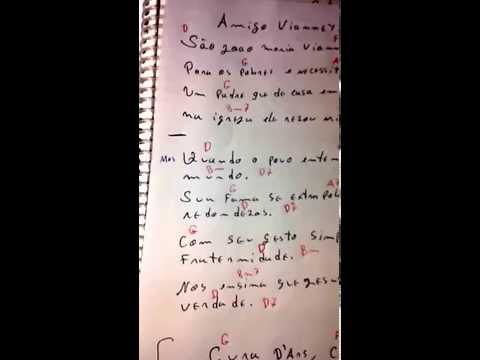 Amigo Vianney
D
São João maria Viann
G A
Para os pobres e necessit
G
Um padre que de casa em
Bm7
na igreja ele rezou mi
D
mas Quando o povo enten
Bm D7
mundo.
G A7
Sua Fama se extrapol
D D7
redondezas.
G
Com seu gesto simp
D Bm
Fraternidade.
Bm7
Nos ensina que
D D7
verdade.
G
Cura D'Ars, C